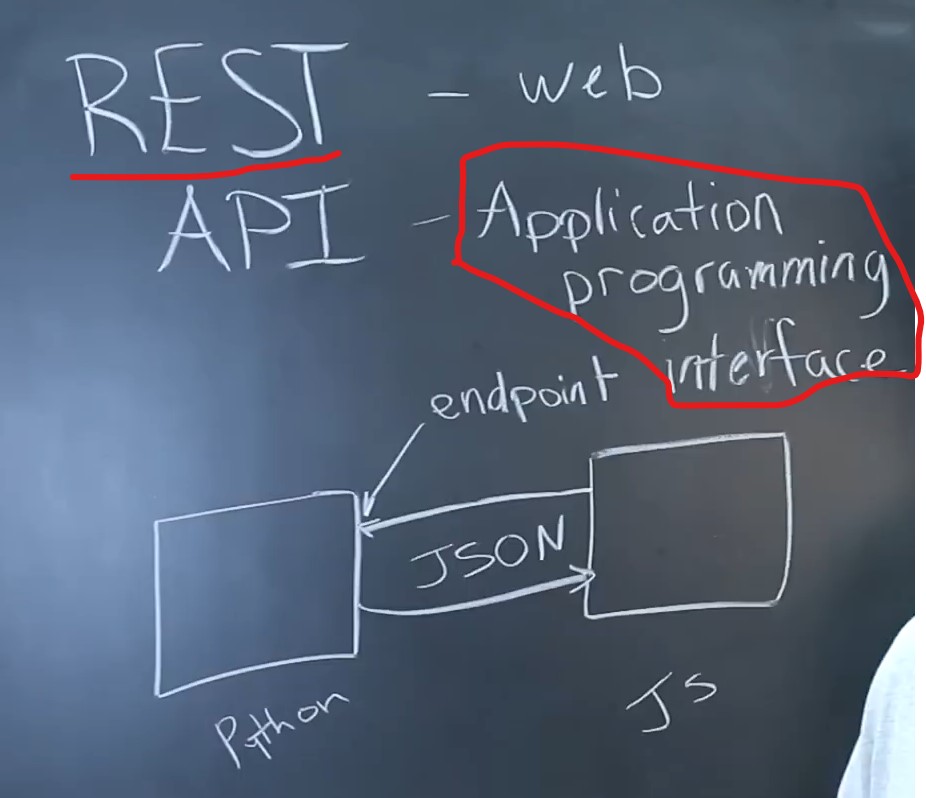 REST - web
API - Application
programming
interface
endpoint
JSON
Python
JS